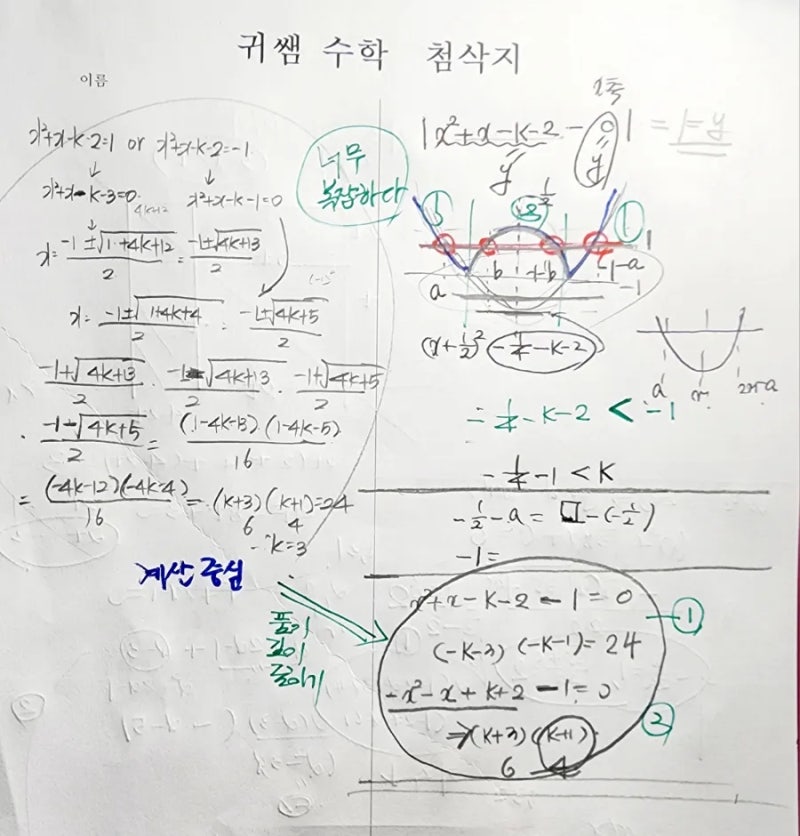 귀쌤 수학 첨삭지
이름
x²+x-k-2=1 or x²+x-k-2=-1
↓ ↓
x²+x-k-3=0 x²+x-k-1=0
4k+12
x=(-1±√(1+4k+12))/2 = (-1±√(4k+13))/2
x=(-1±√(1+4k+4))/2 = (-1±√(4k+5))/2
(-1+√(4k+13))/2 · (-1-√(4k+13))/2 · (-1+√(4k+5))/2
· (-1-√(4k+5))/2 = (1-4k-13)·(1-4k-5)/16
= (-4k-12)(-4k-4)/16 = (k+3)(k+1)=24
6 4
∴ k=3
계산 중심
너무
복잡하다
x축
|x²+x-k-2 - 0| = 1=y
y y
1/2
① ② ①
1
a b +b -1-a
-1
(x+1/2)² -1/4-k-2
a m 2m-a
= -1/4-k-2 < -1
-1/4-1<k
-1/2-a = □-(-1/2)
-1=
풀이
길이
줄이기
x²+x-k-2-1=0
①
(-k-3)(-k-1)=24
-x²-x+k+2-1=0
②
⇒(k+3)(k+1)
6 4